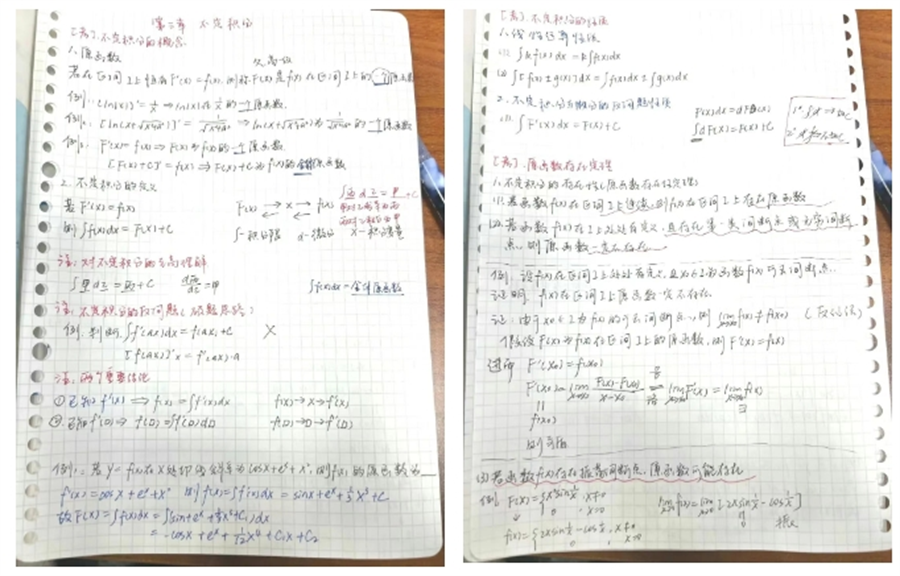 第三章 不定积分
[考]. 不定积分的概念
1. 原函数
若在区间 I 上恒有 F'(x) = f(x), 则称 F(x) 是 f(x) 在区间 I 上的一个原函数
例1.
的一个原函数
例2. [ln(x+√(x²+a²))]' = 1/√(x²+a²) ⇒ ln(x+√(x²+a²)) 为 1/√(x²+a²) 的一个原函数
例3. F'(x) = f(x) ⇒ F(x) 为 f(x) 的一个原函数
[F(x)+C]' = f(x) ⇒ F(x)+C 为 f(x) 的全体原函数
2. 不定积分的定义
若 F'(x) = f(x)
则 ∫f(x)dx = F(x)+C
F(x) → x → f(x)
注: 对不定积分的
理解
∫f(x)dx = 全体原函数
注: 不定积分的
问题
例. 判断. ∫f'(ax)dx = f(ax)+C ×
[f(ax)]'x = f'(ax)·a
注: 两个重要结论
① 已知 f'(x) ⇒ f(x) = ∫f'(x)dx f(x)→x→f'(x)
② 已知 f'(□) ⇒ f(□) = ∫f'(□)d□ f(□)→□→f'(□)
例1. 若 y = f(x) 在 x 处切线斜率为 cosx+eˣ+x², 则 f(x) 的原函数为__
f'(x) = cosx+eˣ+x² 则 f(x) = ∫f'(x)dx = sinx+eˣ+⅓x³+C
故 F(x) = ∫f(x)dx = ∫(sinx+eˣ+⅓x³+C₁)dx
= -cosx+eˣ+1/12x⁴+C₁x+C₂
[考]. 不定积分的性质
1. 线性运算性质
(1). ∫kf(x)dx = k∫f(x)dx
(2) ∫[f(x)±g(x)]dx = ∫f(x)dx ± ∫g(x)dx
2. 不定积分与微分的
(1). ∫F'(x)dx = F(x)+C
F'(x)dx = dF(x)
∫dF(x) = F(x)+C
[考]. 原函数存在定理
1. 不定积分的存在性 (原函数存在定理)
(1). 若函数 f(x) 在区间 I 上连续, 则 f(x) 在区间 I 上存在原函数
(2). 若函数 f(x) 在 I 上处处有定义, 且存在第一类间断点或无穷间断
点, 则原函数一定不存在.
例. 设 f(x) 在区间 I 上处处有定义, 且 x₀∈I 为函数 f(x) 可去间断点.
证明. f(x) 在区间 I 上原函数一定不存在.
证: 由于 x₀∈I 为 f(x) 的可去间断点, 则 lim f(x) ≠ f(x₀) (反证法)
假设 F(x) 为 f(x) 在区间 I 上的原函数, 则 F'(x) = f(x)
F'(x₀) = f(x₀)
F'(x₀) = lim (F(x)-F(x₀))/(x-x₀) = lim F'(x) = lim f(x)
f(x₀)
则矛盾
(3) 若函数 f(x) 存在振荡间断点, 原函数可能存在
例. F(x) = { x²sin1/x, x≠0
0 , x=0
lim f(x) = lim [2xsin1/x - cos1/x]
振荡
f(x) = { 2xsin1/x - cos1/x, x≠0
0 , x=0